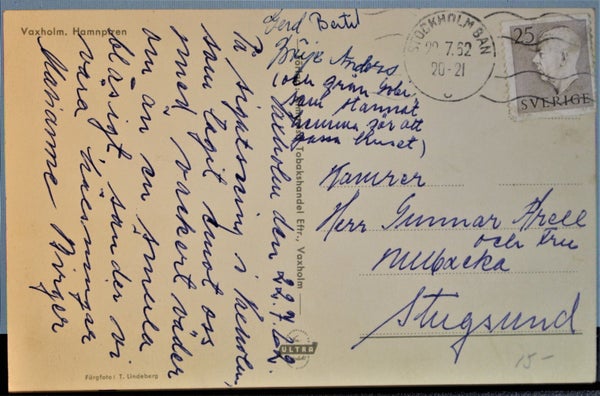 Vaxholm. Hamnpiren
Vaxholm den 22.7.62.
På sightseeing i Vaxholm,
som tagit emot oss
med vackert väder
om än en smula
blåsigt sänder vi
våra hälsningar
Marianne Birger
Gerd Bertil
Börje Anders
(och grön
som stannat
hemma för att
passa huset)
Tobakshandel Eftr., Vaxholm
ULTRA
Färgfoto: T. Lindeberg
STOCKHOLM BAN
22.7.62
20-21
25
SVERIGE
Kamrer
Herr Gunnar Arell
och Fru
Millbacka
Stugsund
15-